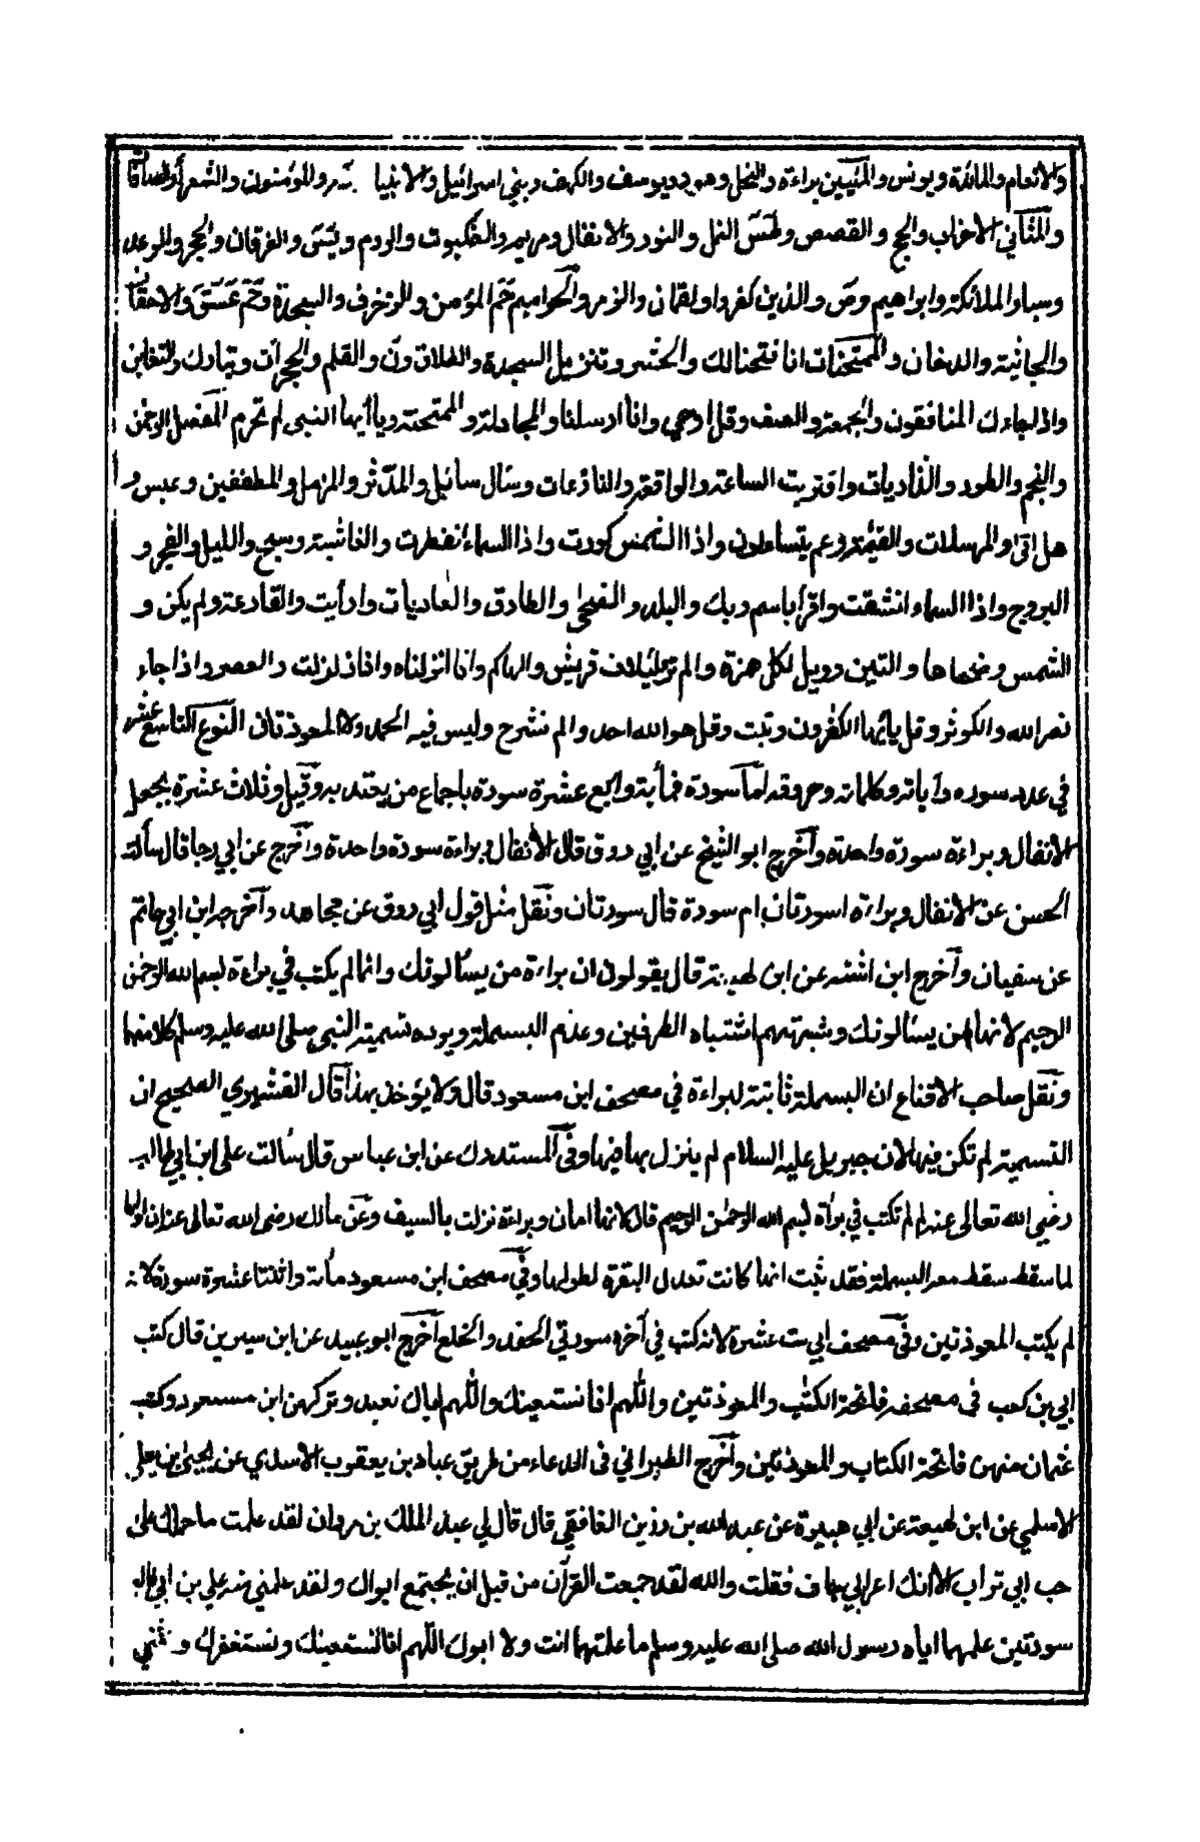 والانعام والمائدة ويونس والمئيين براءة والنحل وهود ويوسف والكهف وبني اسرائيل والانبيا وطه والمؤمنون والشعرآ والصآفا
والمثاني الاحزاب والحج والقصص وطس النمل والنور والانفال ومريم والعنكبوت والروم ويس والفرقان والحجر والرعد
وسبا والملائكة وابراهيم وص والذين كفروا ولقمان والزمر والحواميم حم المؤمن والزخرف والسجدة وحم عسق والاحقاف
والجاثية والدخان والممتحنات انا فتحنالك والحشر وتنزيل السجدة والطلاق ون والقلم والحجرات وتبارك والتغابن
واذا جاءك المنافقون والجمعة والصف وقل اوحي وانا ارسلنا والمجادلة والممتحنة وياأيها النبي لم تحرم المفصل الرحمن
والنجم والطور والذاريات واقتربت الساعة والواقعة والنازعات وسال سائيل والمدّثر والمزمل والمطففين وعبس و
هل اتى والمرسلات والقيٰمة وعم يتسائلون واذا الشمس كورت واذا السماء انفطرت والغاشية وسبح والليل والفجر و
البروج واذا السماء انشقت واقرأ باسم ربك والبلد والضحى والطارق والعاديات وارأيت والقارعة ولم يكن و
الشمس وضحاها والتين وويل لكل همزة والم تر لئيلاف قريش والهاكم وانا انزلناه واذا زلزلت والعصر واذا جاء
نصر الله والكوثر وقل يايها الكفرون وتبت وقل هو الله احد والم نشرح وليس فيه الحمد ولا المعوذتان النوع التاسع عشر
في عدد سوره وآياته وكلماته وحروفه اما سورة فمأية واربع عشرة سورة باجماع من يعتد به وقيل وثلاث عشرة بجعل
الانفال وبراءة سورة واحدة وآخرج ابو الشيخ عن ابي روق قال الانفال وبراءة سورة واحدة وآخرج عن ابي رجا قال سألت
الحسن عن الانفال وبراءة اسورتان ام سورة قال سورتان ونقل مثل قول ابي روق عن مجاهد وآخرجه ابن ابي حاتم
عن سفيان وآخرج ابن اشته عن ابن لهيعة قال يقولون ان براءة من يسألونك وانما لم يكتب في براءة بسم الله الرحمن
الرحيم لانها من يسألونك وشبهتهم اشتباه الطرفين وعدم البسملة ويرده تسمية النبي صلى الله عليه وسلم كلا منهما
ونقل صاحب الاقناع ان البسملة ثابتة لبراءة في مصحف ابن مسعود قال ولا يؤخذ بهذا قال القشيري الصحيح ان
التسمية لم تكن فيها لان جبريل عليه السلام لم ينزل بها فيها وفى المستدرك عن ابن عباس قال سألت علي ابن ابي طالب
رضي الله تعالى عنه لم لم تكتب في براة بسم الله الرحمٰن الرحيم قال لانها امان وبراءة نزلت بالسيف وعن مالك رضى الله تعالى عنه ان اولها
لما سقط سقط معه البسملة فقد ثبت انها كانت تعدل البقرة لطولها وفي مصحف ابن مسعود مأة واثنتا عشرة سورة لانه
لم يكتب المعوذتين وفي مصحف ابي ست عشرة لانه كتب في آخره سورتي الحفد والخلع آخرج ابو عبيد عن ابن سيرين قال كتب
ابي بن كعب في مصحفه فاتحة الكتٰب والمعوذتين واللّهم انا نستعينك واللّهم اياك نعبد وتركهن ابن مسعود وكتب
عثمان منهن فاتحة الكتاب والمعوذتين وآخرج الطبراني فى الدعاء من طريق عباد بن يعقوب الاسدي عن يحيى بن يعلى
الاسلمي عن ابن لهيعة عن ابي هبيرة عن عبد الله بن رزين الغافقي قال قال لي عبد الملك بن مروان لقد علمت ما حملك على
حب ابي تراب الا انك اعرابي جاف فقلت والله لقد جمعت القرآن من قبل ان يجتمع ابواك ولقد علمني منه علي بن ابي طالب
سورتين علمهما اياه رسول الله صلى الله عليه وسلم ما علمتهما انت ولا ابوك اللّهم انا نستعينك ونستغفرك ونثني